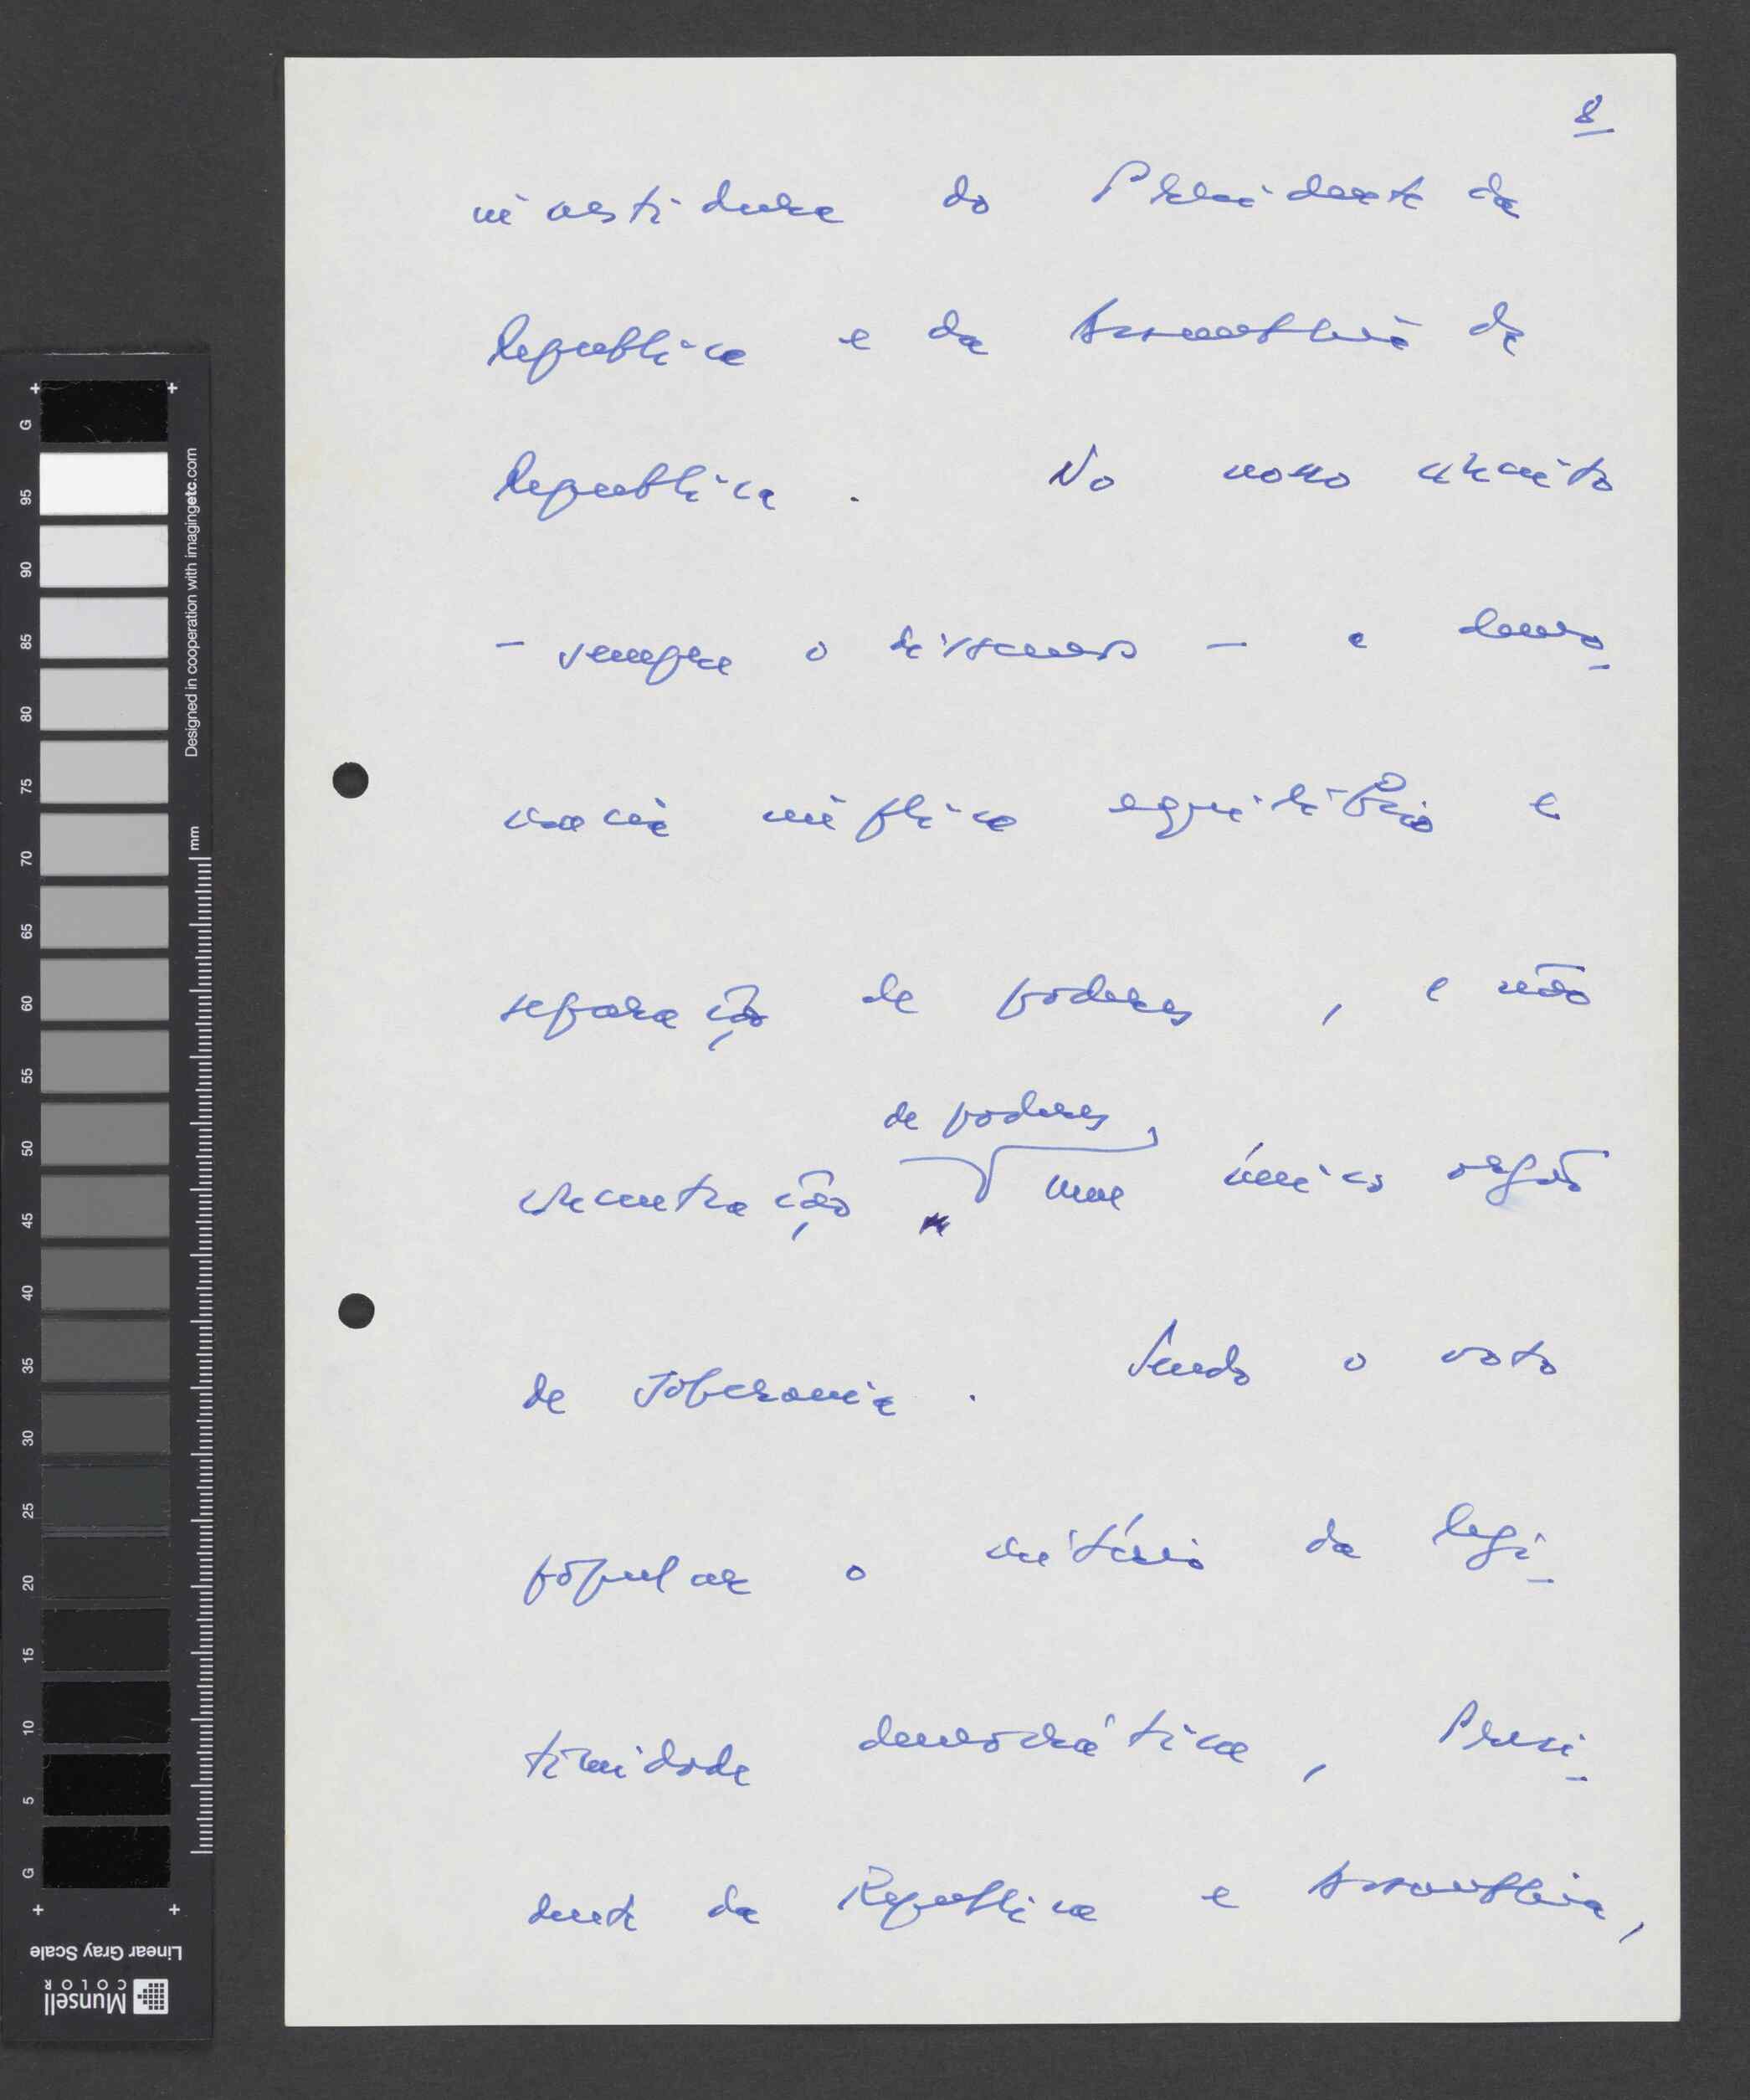 8
investidura do Presidente da
Republica e da Assembleia da
Republica. No nosso conceito
- sempre o dissemos - a demo-
cracia implica equilibrio e
separação de poderes, e não
de poderes,
concentração num único orgão
de soberania. Sendo o voto
popular o critério da legi-
timidade democrática, Presi-
dente da Republica e Assembleia,
G
95
90
85
80
75
70
65
60
55
50
45
40
35
30
25
20
15
10
5
G
Designed in cooperation with imagingetc.com
mm
Linear Gray Scale
Munsell
COLOR